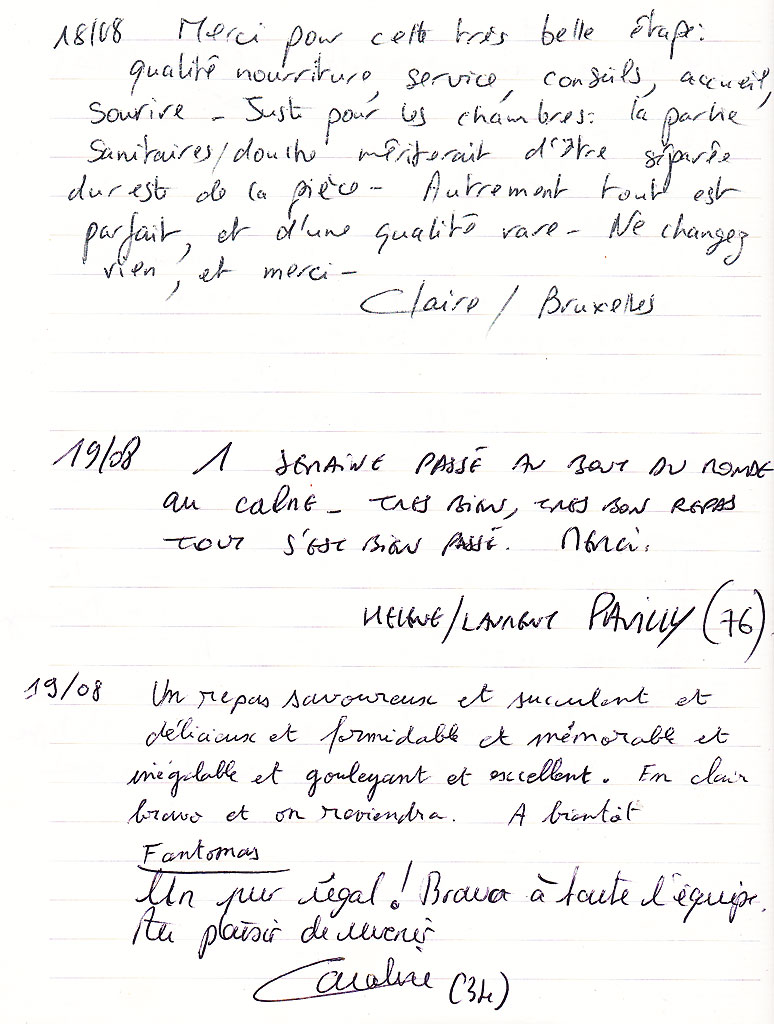 18/08 Merci pour cette très belle étape:
qualité nourriture, service, conseils, accueil,
sourire - Juste pour les chambres: la partie
Sanitaires/douche mériterait d'être séparée
du reste de la pièce - Autrement tout est
parfait, et d'une qualité rare - Ne changez
rien, et merci -
Claire / Bruxelles
19/08 1 SEMAINE PASSÉ AU BOUT DU MONDE
au calme - TRES BIEN, TRES BON REPAS
TOUT S'EST BIEN PASSÉ. MERCI.
HELENE/LAURENT PAVILLY (76)
19/08 Un repas savoureux et succulent et
délicieux et formidable et mémorable et
inégalable et gouleyant et excellent. En clair
bravo et on reviendra. A bientôt
Fantomas
Un pur régal! Bravo à toute l'équipe.
Au plaisir de revenir
Caroline (34)